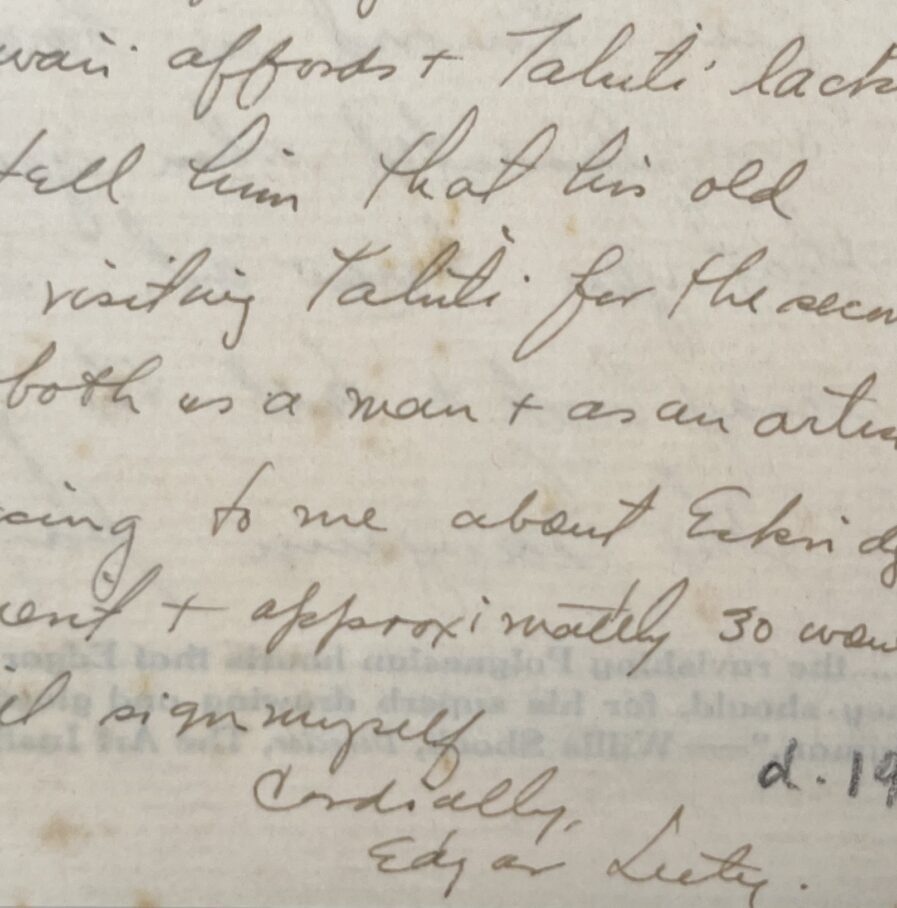 waii affords + Tahiti lack
tell him that his old
visiting Tahiti for the secon
both as a man + as an artis
cing to me about Eskridg
ment + approximately 30 wom
... the ravishing Polynesian heads that Edgar
ey should, for his superb drawing and
." — Willis Shook, Director, The Art Insti
sign myself
d. 19
Cordially,
Edgar Leeteg.